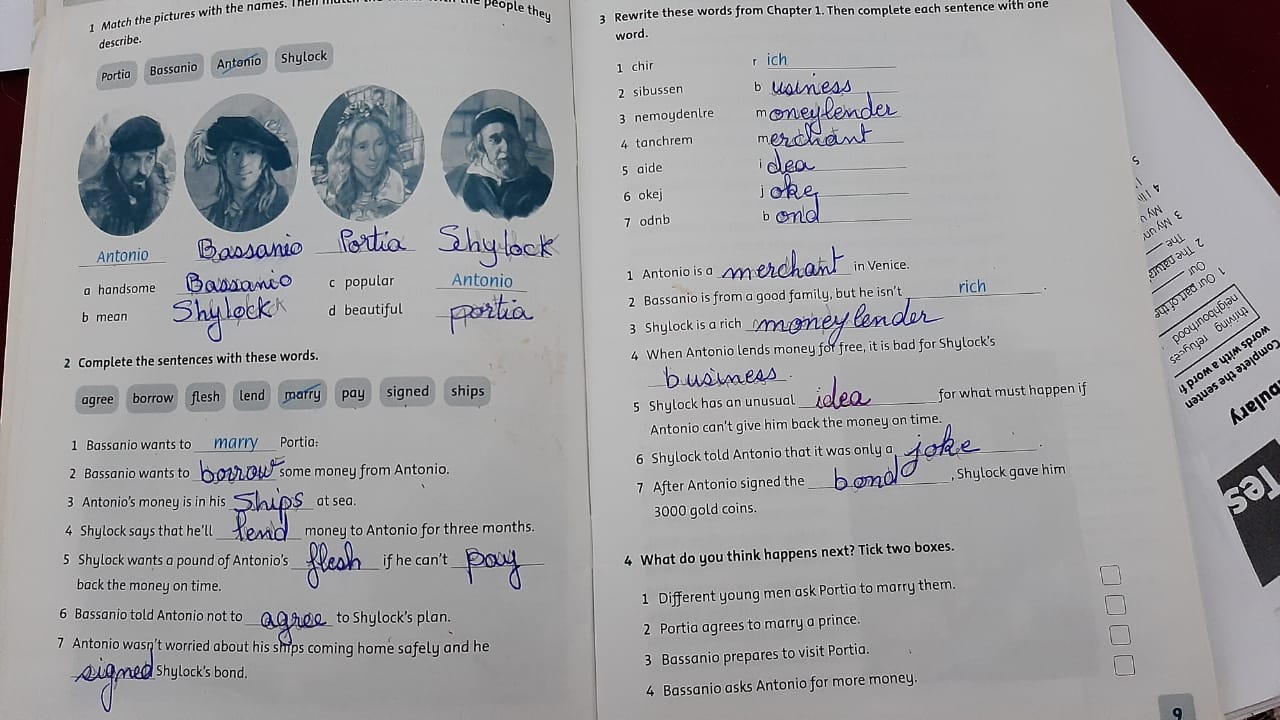 1 Match the pictures with the names. Then the people they
describe.
Portia Bassanio Antonio Shylock
Antonio Bassanio Portia Shylock
a handsome Bassanio c popular Antonio
b mean Shylock d beautiful portia
2 Complete the sentences with these words.
agree borrow flesh lend marry pay signed ships
1 Bassanio wants to marry Portia.
2 Bassanio wants to borrow some money from Antonio.
3 Antonio's money is in his ships at sea.
4 Shylock says that he'll lend money to Antonio for three months.
5 Shylock wants a pound of Antonio's flesh if he can't pay
back the money on time.
6 Bassanio told Antonio not to agree to Shylock's plan.
7 Antonio wasn't worried about his ships coming home safely and he
signed Shylock's bond.
3 Rewrite these words from Chapter 1. Then complete each sentence with one
word.
1 chir r ich
2 sibussen b usiness
3 nemoydenlre m oneylender
4 tanchrem m erchant
5 aide i dea
6 okej j oke
7 odnb b ond
1 Antonio is a merchant in Venice.
2 Bassanio is from a good family, but he isn't rich.
3 Shylock is a rich moneylender
4 When Antonio lends money for free, it is bad for Shylock's
business.
5 Shylock has an unusual idea for what must happen if
Antonio can't give him back the money on time.
6 Shylock told Antonio that it was only a joke.
7 After Antonio signed the bond, Shylock gave him
3000 gold coins.
4 What do you think happens next? Tick two boxes.
1 Different young men ask Portia to marry them.
2 Portia agrees to marry a prince.
3 Bassanio prepares to visit Portia.
4 Bassanio asks Antonio for more money.
9
Tes
bulary
Complete the senten
words with a word f
thriving refuses
neighbourhood
1 Our part of the
Our
2 The nature
The
3 My unc
My u
4 I li
5